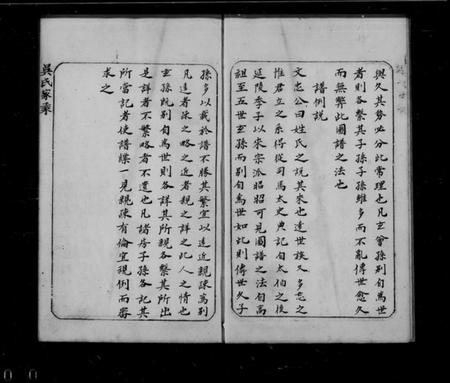 與久其勢必分此常理也凡玄會孫別自為世
者則各繫其子孫子孫雖多而不亂傳世愈久
而無弊此圖譜之法也
譜例說
文忠公曰姓氏之說其來也遠世族又多忘之
惟君立之系得從司馬太史典記自太伯之後
延陵季子以來宗派昭昭可見圖譜之法自高
祖至五世玄孫而別自為世如此則傳世久子
孫多以載於譜不勝其繁宜以遠近親疎為別
凡遠者疎之略之近者親之詳之此人之情也
玄孫既別自為世則各詳其所親各繫其所出
是詳者不繁略者不遺也凡諸房子孫各記其
所當記者使譜牒一見親疎有倫宜視例而審
求之
吳氏家乘
0 0